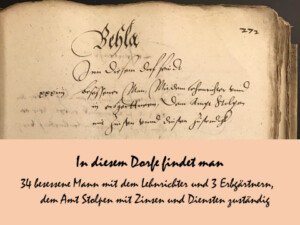 Behla
272
Inn diesem dorf seindt
xxxiiij besessene Man, Mit dem lehenrichter vnnd
iij erbgarttnern, dem Ampt Stolpen
mit zinsen vnnd diensten zustendig
In diesem Dorfe findet man
34 besessene Mann mit dem Lehnrichter und 3 Erbgärtnern,
dem Amt Stolpen mit Zinsen und Diensten zuständig